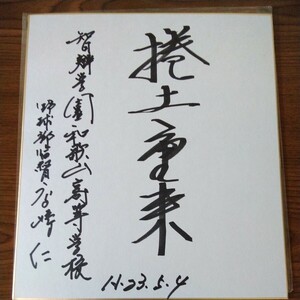 捲土重来
智辯学園和歌山高等学校
野球部監督 高嶋 仁
H.23.5.4